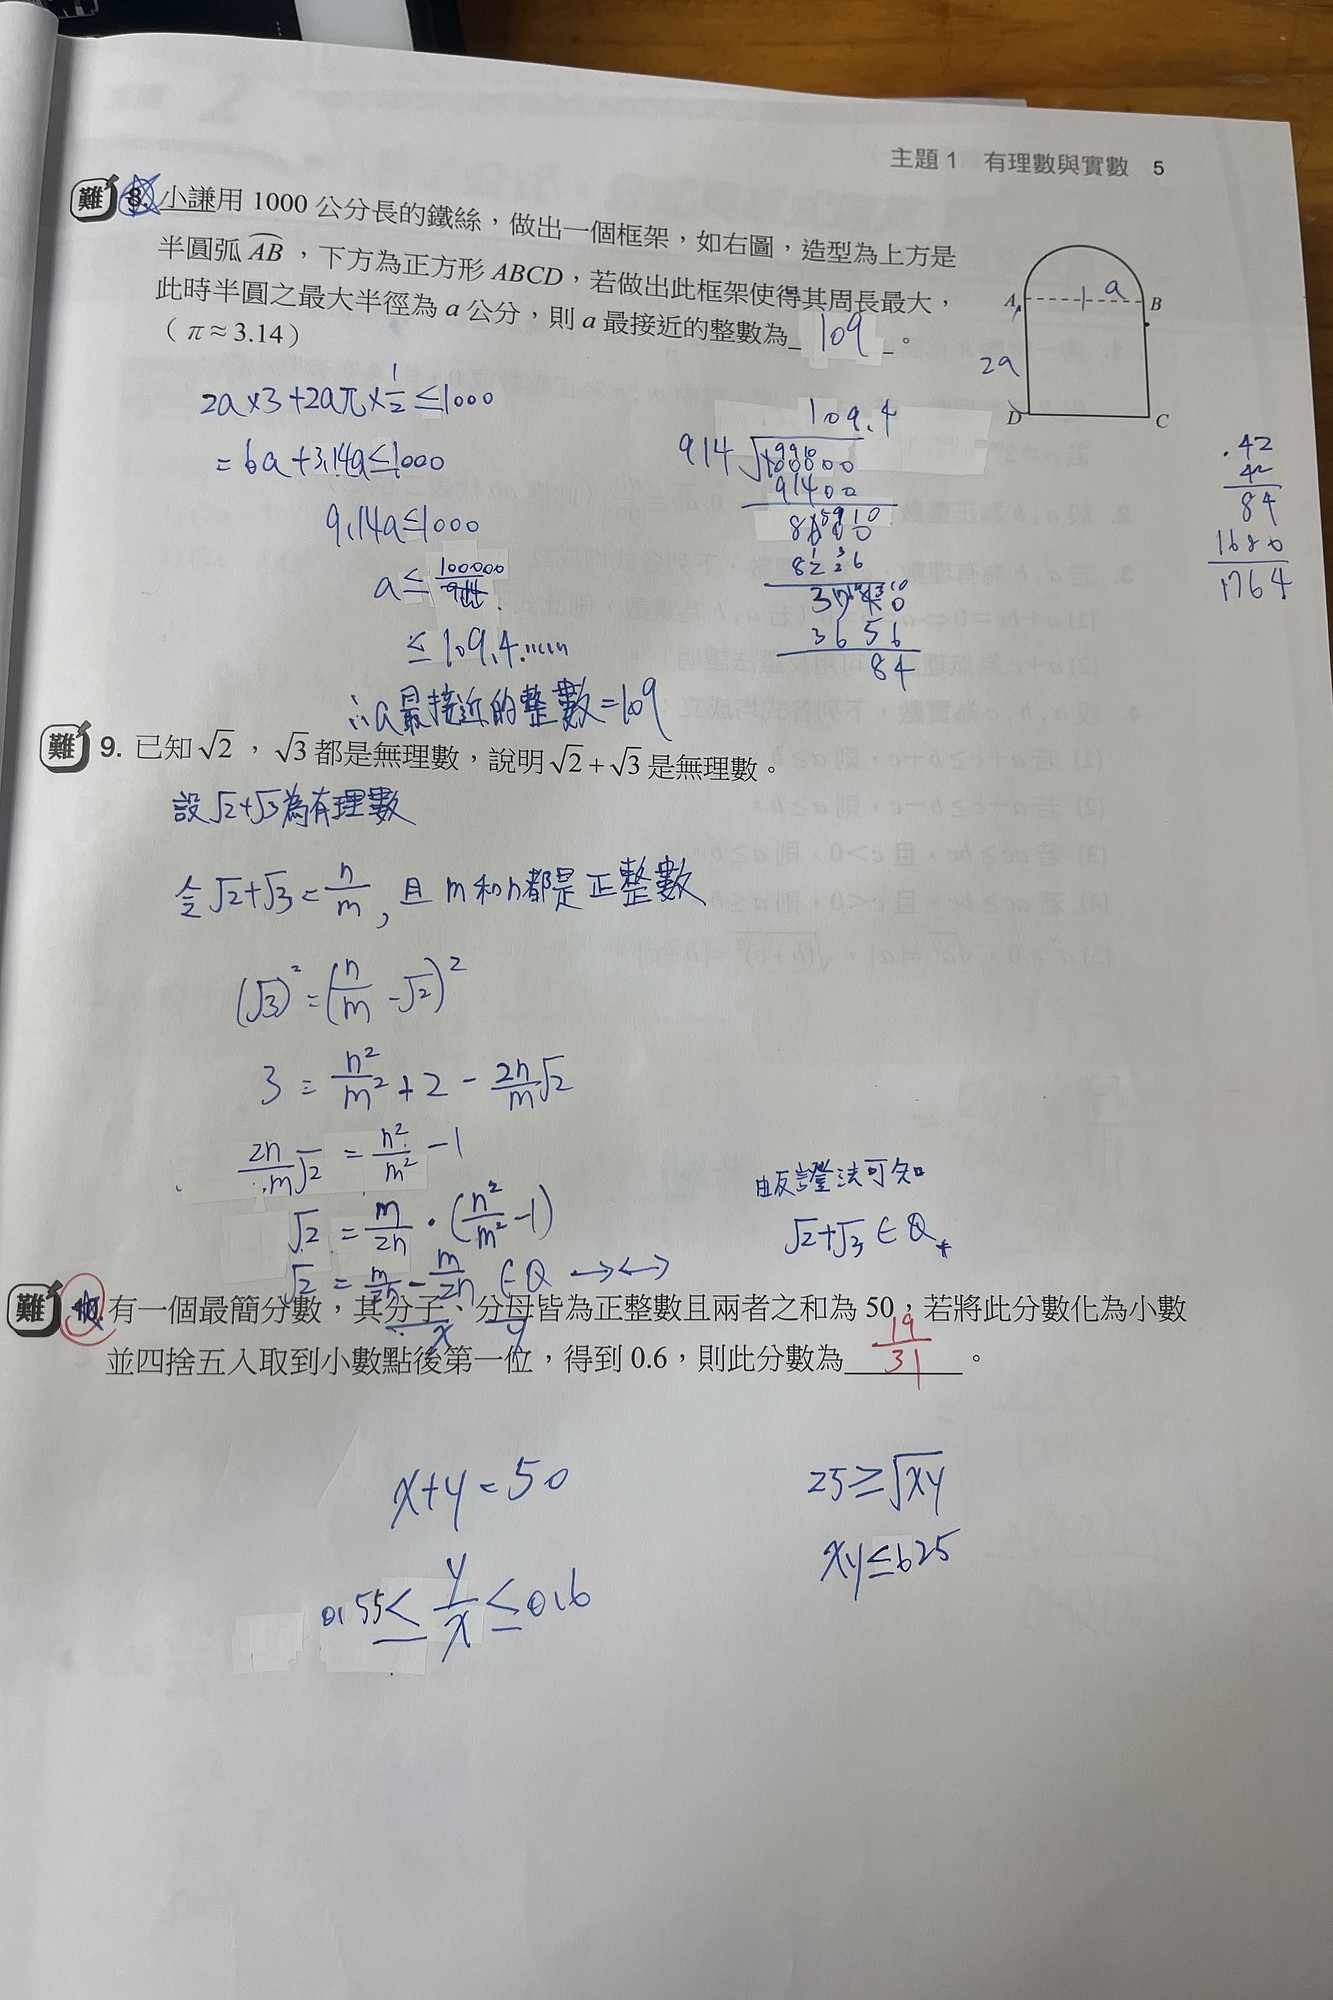 主題1 有理數與實數 5
難 8. 小謙用 1000 公分長的鐵絲，做出一個框架，如右圖，造型為上方是
半圓弧 AB，下方為正方形 ABCD，若做出此框架使得其周長最大，
此時半圓之最大半徑為 a 公分，則 a 最接近的整數為 109 。
（π≈3.14）
A a B
2a
D C
2a×3+2aπ×1/2≤1000
=6a+3.14a≤1000
9.14a≤1000
a≤100000/914
≤109.4......
∴a最接近的整數=109
109.4
914√100000
91400
8600
8226
3740
3656
84
.42
42
84
1680
1764
難 9. 已知√2，√3都是無理數，說明√2+√3是無理數。
設√2+√3為有理數
令√2+√3=n/m，且m和n都是正整數
(√3)²=(n/m-√2)²
3=n²/m²+2-2n/m√2
2n/m√2=n²/m²-1
√2=m/2n·(n²/m²-1)
由反證法可知
√2+√3∈Q
難 10. 有一個最簡分數，其分子、分母皆為正整數且兩者之和為 50，若將此分數化為小數
x y
並四捨五入取到小數點後第一位，得到 0.6，則此分數為 19/31 。
x+y=50
25≥√xy
xy≤625
0.55≤y/x≤0.6